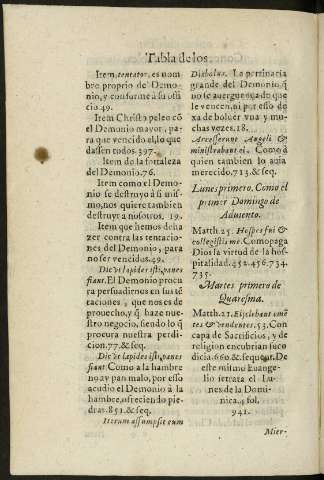 Tabla de los
Item, tentator, es nom
bre proprio de Demo-
nio, y conforme à su offi
cio 49.
Item Christo peleo cõ
el Demonio mayor, pa-
ra que vencido el, lo que
dassen todos. 397.
Item de la fortaleza
del Demonio. 76.
Item como el Demo-
nio se destruyo à si mis-
mo, nos quiere tambien
destruyr a nosotros. 19.
Item que hemos de ha
zer contra las tentacio-
nes del Demonio, para
no ser vencidos. 49.
Dic vt lapides isti, panes
fiant. El Demonio procu
ra persuadirnos en sus tē
taciones, que nos es de
prouecho, y q̃ haze nue-
stro negocio, siendo lo q̃
procura nuestra perdi-
cion. 77. & seq.
Dic vt lapides isti, panes
fiant. Como a la hambre
no ay pan malo, por esso
acudio el Demonio à la
hambre, ofreciendo pie-
dras. 851. & seq.
Iterum assumpsit eum
Diabolus. La pertinacia
grande del Demonio, q̃
no se auerguence de que
le vencen, ni por esso de
xa de boluer vna y mu-
chas vezes. 18.
Accesserunt Angeli &
ministrabant ei. Como à
quien tambien lo auia
merecido. 713. & seq.
Lunes primero. Como el
primer Domingo de
Aduiento.
Matth. 25. Hospes fui &
collegistis me. Como paga
Dios la virtud de la hos-
pitalidad. 452. 456. 734.
735.
Martes primero de
Quaresma.
Matth. 21. Eijciebat emē
tes & vendentes. 53. Con
capa de Sacrificios, y de
religion encubrian su co
dicia. 660. & sequent. De
este mismo Euange-
lio se trata el Lu-
nes de la Domi-
nica 4. fol.
941.
Mier-